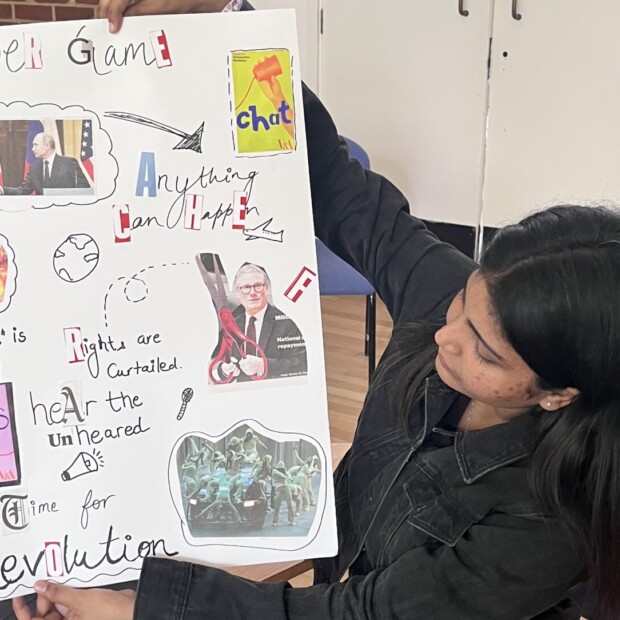 eR GamE
chat
Anything
Can HappEn
F
Rights are
curtailed.
is
heAr the
unheared
Time for
evolution